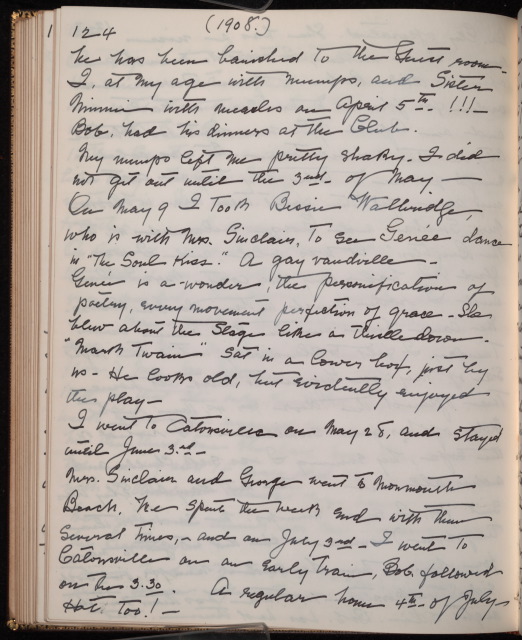 124 (1908.)
he has been banished to the Guest room -
I, at my age with mumps, and Sister
Minnie with measles on April 5th. !!! -
Bob, had his dinners at the Club.
My mumps left me pretty shaky - I did
not get out until the 3rd - of May -
On May 9 I took Bessie Wallridge,
who is with Mrs. Sinclair, to see Genée dance
in "The Soul Kiss." A gay vaudville -
Genée is a wonder, the personification of
poetry, every movement perfection of grace - She
blew about the Stage like a thistledown -
"Mark Twain" sat in a lower box, just by
us - He looks old, but evidently enjoyed
the play -
I went to Catonsville on May 28, and stayed
until June 3rd -
Mrs. Sinclair and George went to Monmouth
Beach. We spent the week end with them
several times, - and on July 3rd - I went to
Catonsville on an early train, Bob followed
on the 3.30. A regular home 4th - of July -
Hot, too! -